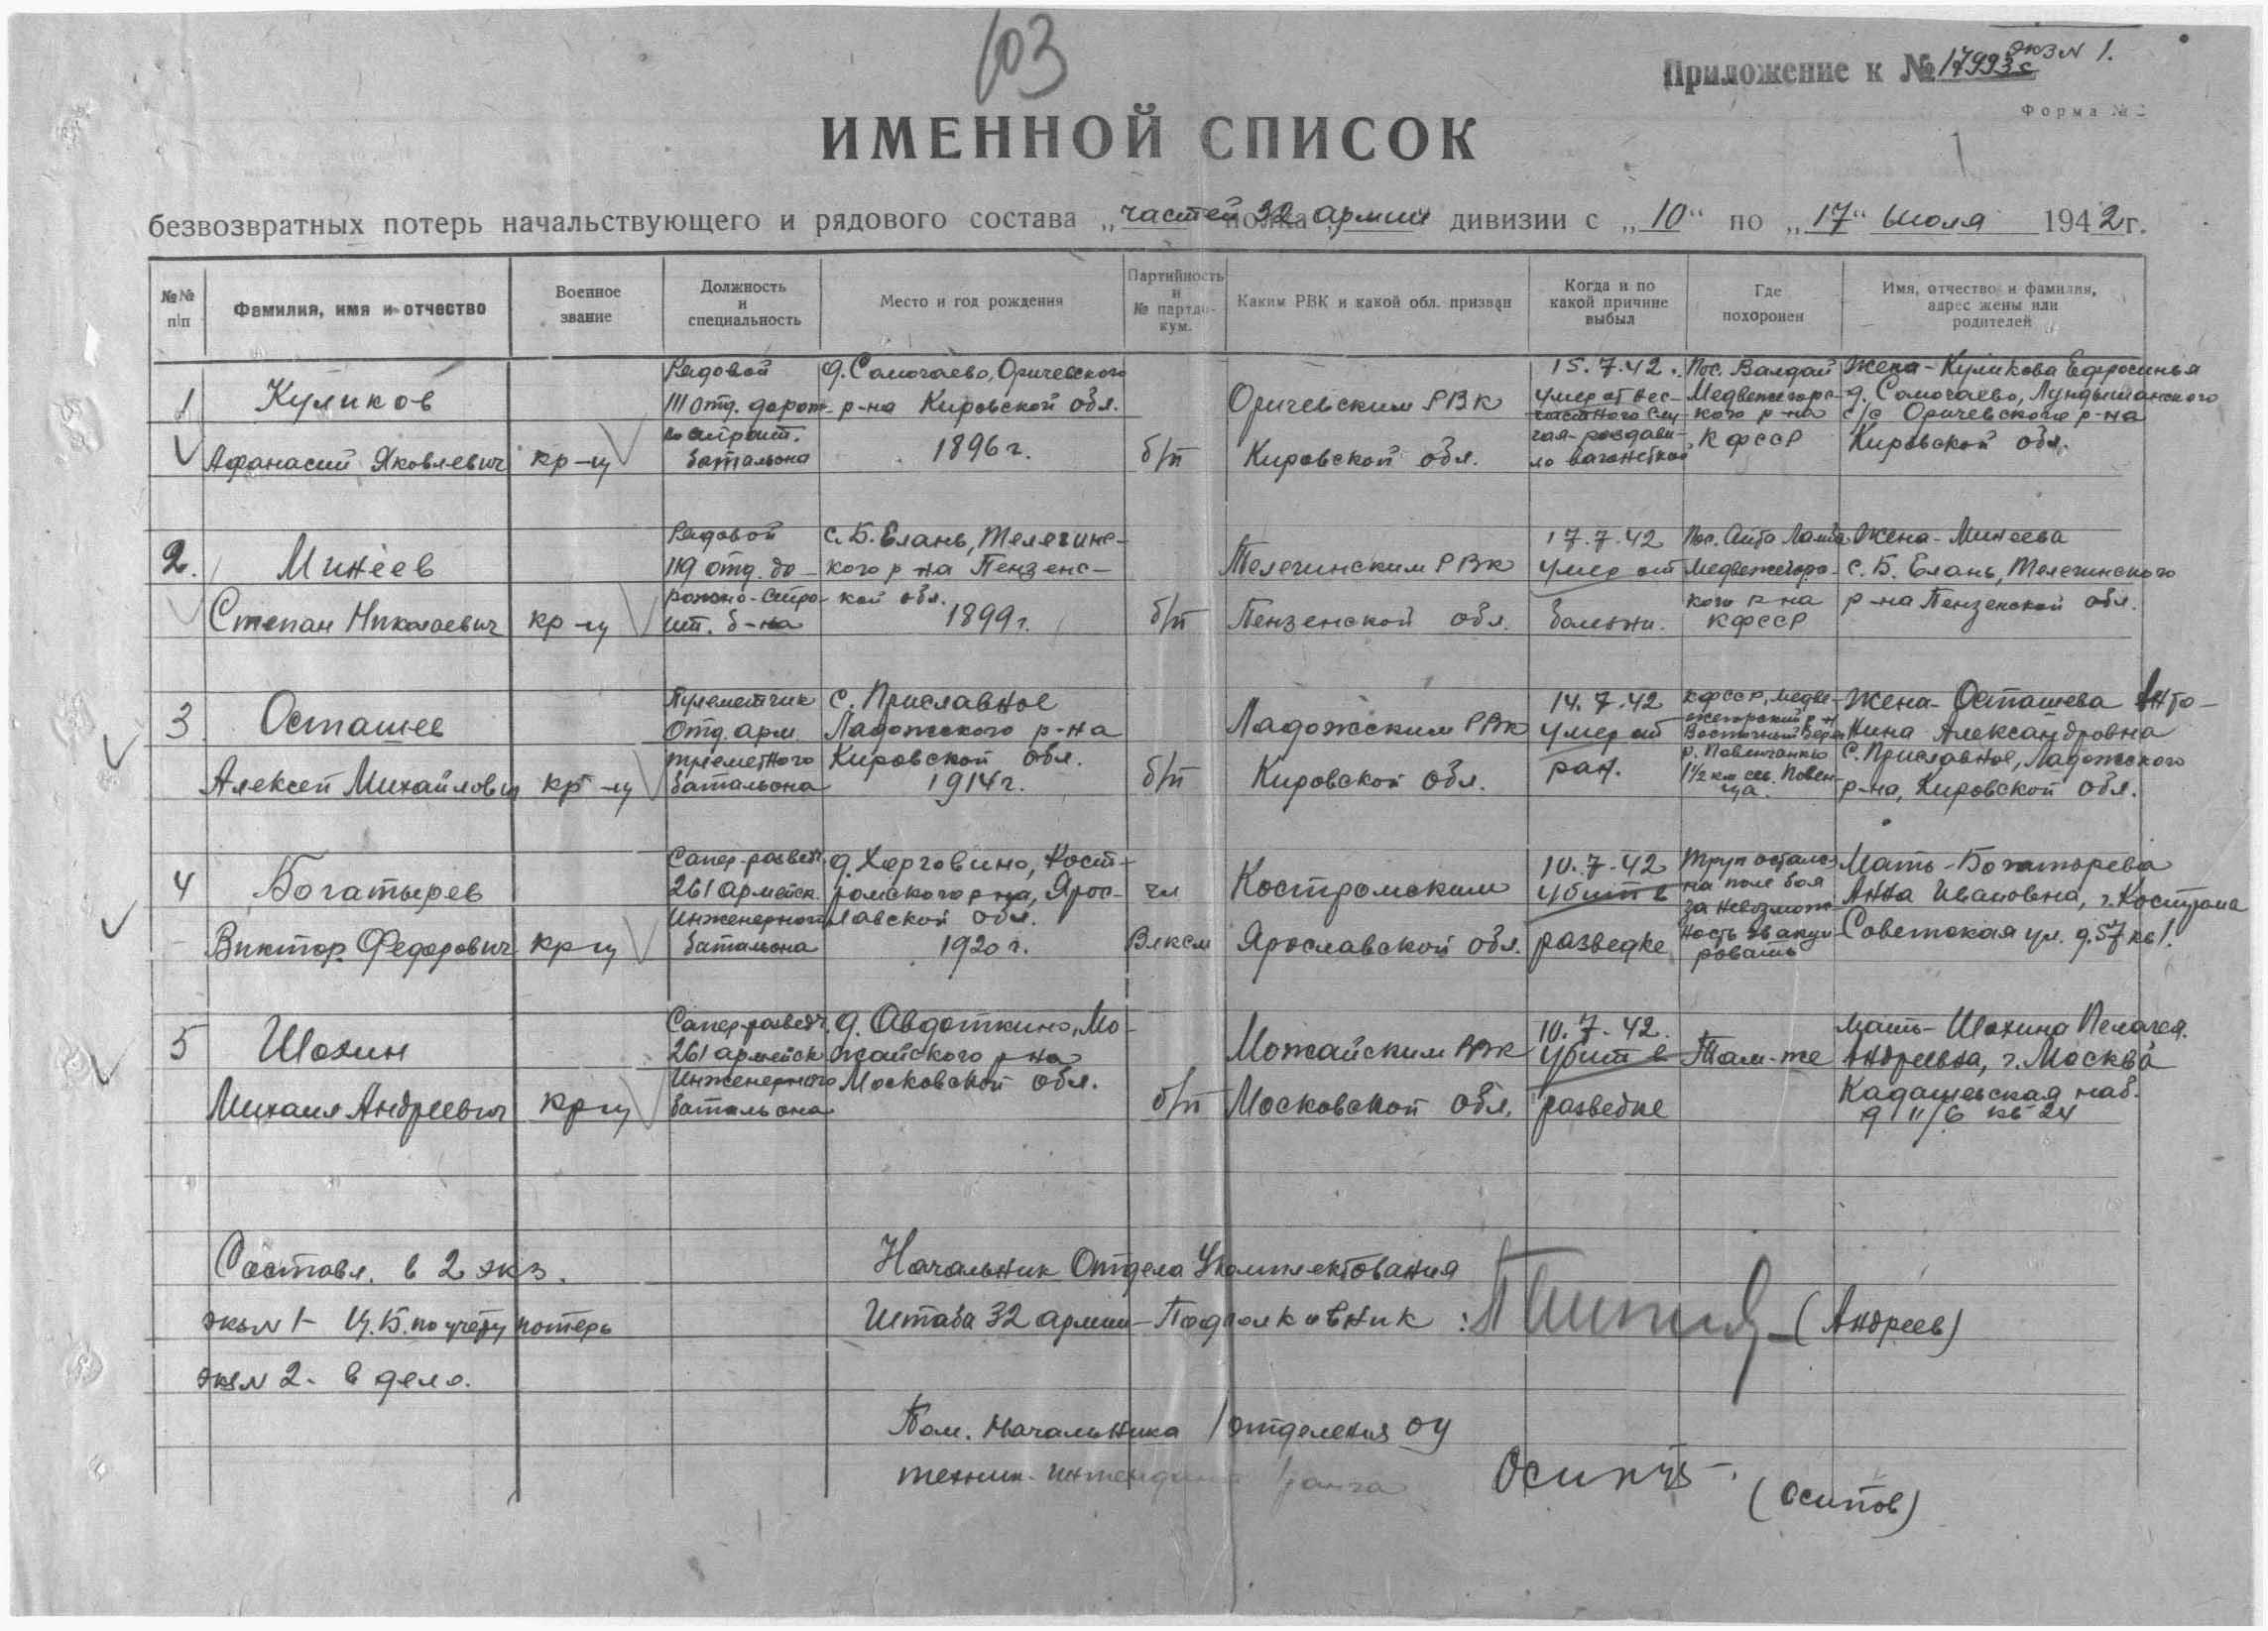 103
экз № 1.
Приложение к № 17993с
Форма № 2
1
ИМЕННОЙ СПИСОК
безвозвратных потерь начальствующего и рядового состава „частей полка 32 армии дивизии с „10“ по „17“ июля 1942г.
№№ п/п
Фамилия, имя и отчество
Военное звание
Должность и специальность
Место и год рождения
Партийность и № партдо-кум.
Каким РВК и какой обл. призван
Когда и по какой причине выбыл
Где похоронен
Имя, отчество и фамилия, адрес жены или родителей
1
Куликов
Афанасий Яковлевич
кр-ц
Рядовой
111 отд. дорож-
но строит.
батальона
д. Самочаево, Оричевского
р-на Кировской обл.
1896г.
б/п
Оричевским РВК
Кировской обл.
15.7.42.
умер от нес-
частного слу
чая-раздави-
ло вагонеткой
Пос. Валдай
Медвежегорс-
кого р-на
КФССР
Жена-Куликова Ефросинья
д. Самочаево,
с/с Оричевского р-на
Кировской обл.
2.
Минеев
Степан Николаевич
кр-ц
Рядовой
119 отд. до-
рожно-стро-
ит. б-на
с. Б. Елань, Телегинс-
кого р-на Пензенс-
кой обл.
1899г.
б/п
Телегинским РВК
Пензенской обл.
17.7.42
умер от
болезни.
Пос.
Медвежегорс-
кого р-на
КФССР
Жена-Минеева
с. Б. Елань, Телегинского
р-на Пензенской обл.
3
Осташев
Алексей Михайлович
кр-ц
Пулеметчик
Отд. арм.
пулеметного
батальона
с. Приславное
Ладожского р-на
Кировской обл.
1914г.
б/п
Ладожским РВК
Кировской обл.
14.7.42
умер от
ран.
КФССР, Медве-
жегорский р-н
Восточный берег
р. Повенчанка
1½ км сев. Повен-
ца.
Жена-Осташева Анто-
нина Александровна
с. Приславное, Ладожского
р-на, Кировской обл.
4
Богатырев
Виктор Федорович
кр-ц
Сапер-разведч.
261 армейск.
Инженерного
батальона
д. Харговино, Кост-
ромского р-на, Ярос-
лавской обл.
1920г.
чл
ВЛКСМ
Костромским
Ярославской обл.
10.7.42
убит в
разведке
Труп остался
на поле боя
за невозмож-
ность эвакуи-
ровать
Мать-Богатырева
Анна Ивановна, г. Кострома
Советская ул. д.57 кв1.
5
Шохин
Михаил Андреевич
кр-ц
Сапер-разведч.
261 армейск
Инженерного
батальона
д. Авдоткино, Мо-
жайского р-на
Московской обл.
б/п
Можайским РВК
Московской обл.
10.7.42.
убит в
разведке
Там-же
Мать-Шохина Пелагея
Андреевна, г. Москва
Кадашевская наб.
д 11/6 кв 24
Составл. в 2 экз.
экз № 1- Ц.Б. по учету потерь
экз № 2- в дело.
Начальник Отдела Укомплектования
Штаба 32 армии-Подполковник: (Андреев)
Пом. Начальника 1 отделения ОУ
техник-интендант 1 ранга
(Осипов)